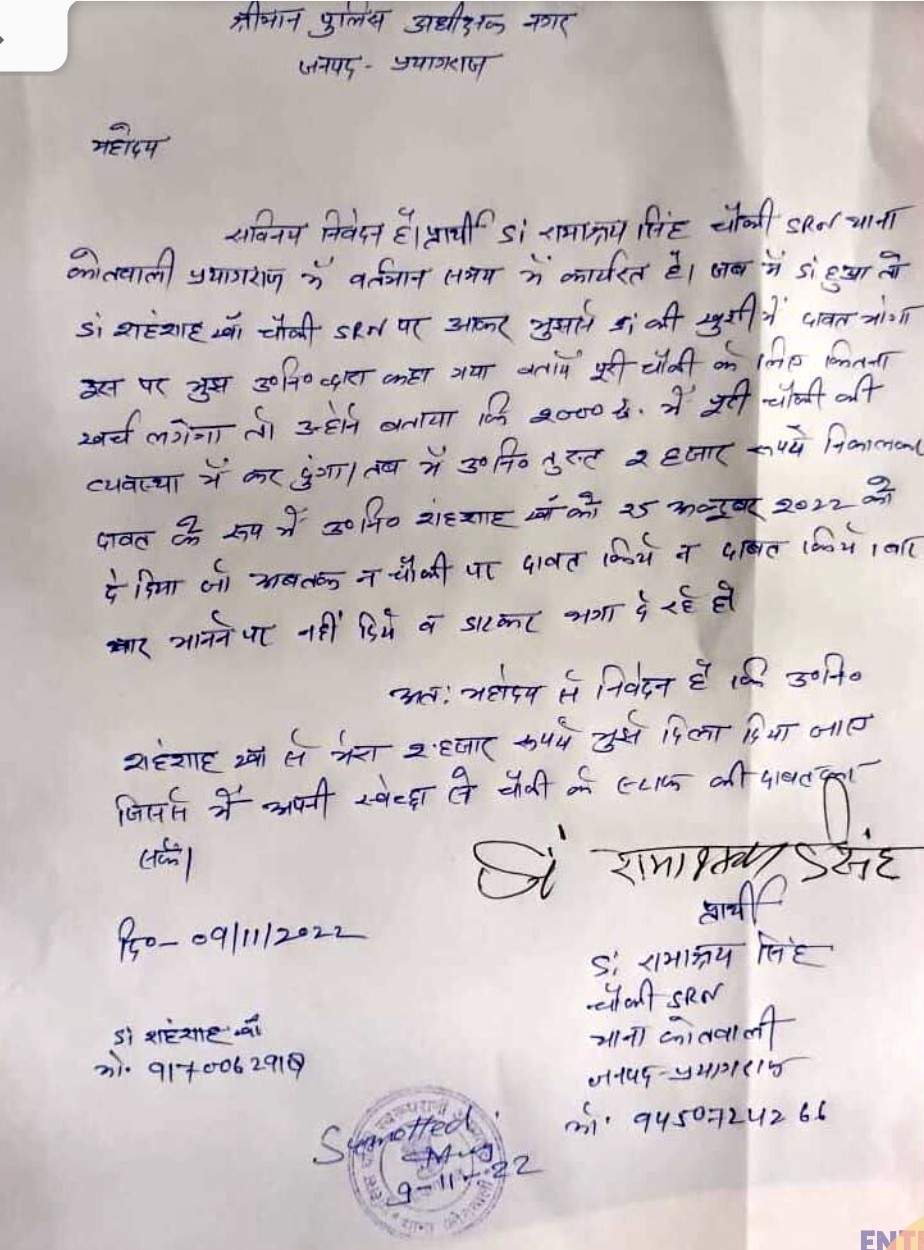 श्रीमान पुलिस अधीक्षक नगर
जनपद - प्रयागराज
महोदय
सविनय निवेदन है। प्रार्थी SI रामाश्रय सिंह चौकी SRN थाना
कोतवाली प्रयागराज में वर्तमान समय में कार्यरत है। जब मैं SI हुआ तो
SI शहंशाह खाँ चौकी SRN पर आकर मुझसे SI की खुशी में दावत मांगा
इस पर मुझ उ०नि० द्वारा कहा गया बतायें पूरी चौकी के लिए कितना
खर्च लगेगा तो उन्होंने बताया कि २००० रु. में पूरी चौकी की
व्यवस्था मैं कर दुंगा। तब मैं उ०नि० तुरन्त २ हजार रूपये निकालकर
दावत के रूप में उ०नि० शंहशाह खाँ को २5 अक्टूबर २०२२ को
दे दिया जो अबतक न चौकी पर दावत किये न दावत किये। बार
बार मागने पर नहीं दिये व डाटकर भगा दे रहे हो
अतः महोदय से निवेदन है कि उ०नि०
शहंशाह खाँ से मेरा २ हजार रूपये मुझे दिला दिया जाए
जिससे मैं अपनी स्वेच्छा से चौकी के स्टाफ की दावत करा
सकूँ।
SI रामाश्रय सिंह
प्रार्थी
दि०- 09/11/2022
SI रामाश्रय सिंह
चौकी SRN
SI शहंशाह खाँ
थाना कोतवाली
मो. 917006291
जनपद - प्रयागराज
मो. 9450724266
9-11-22